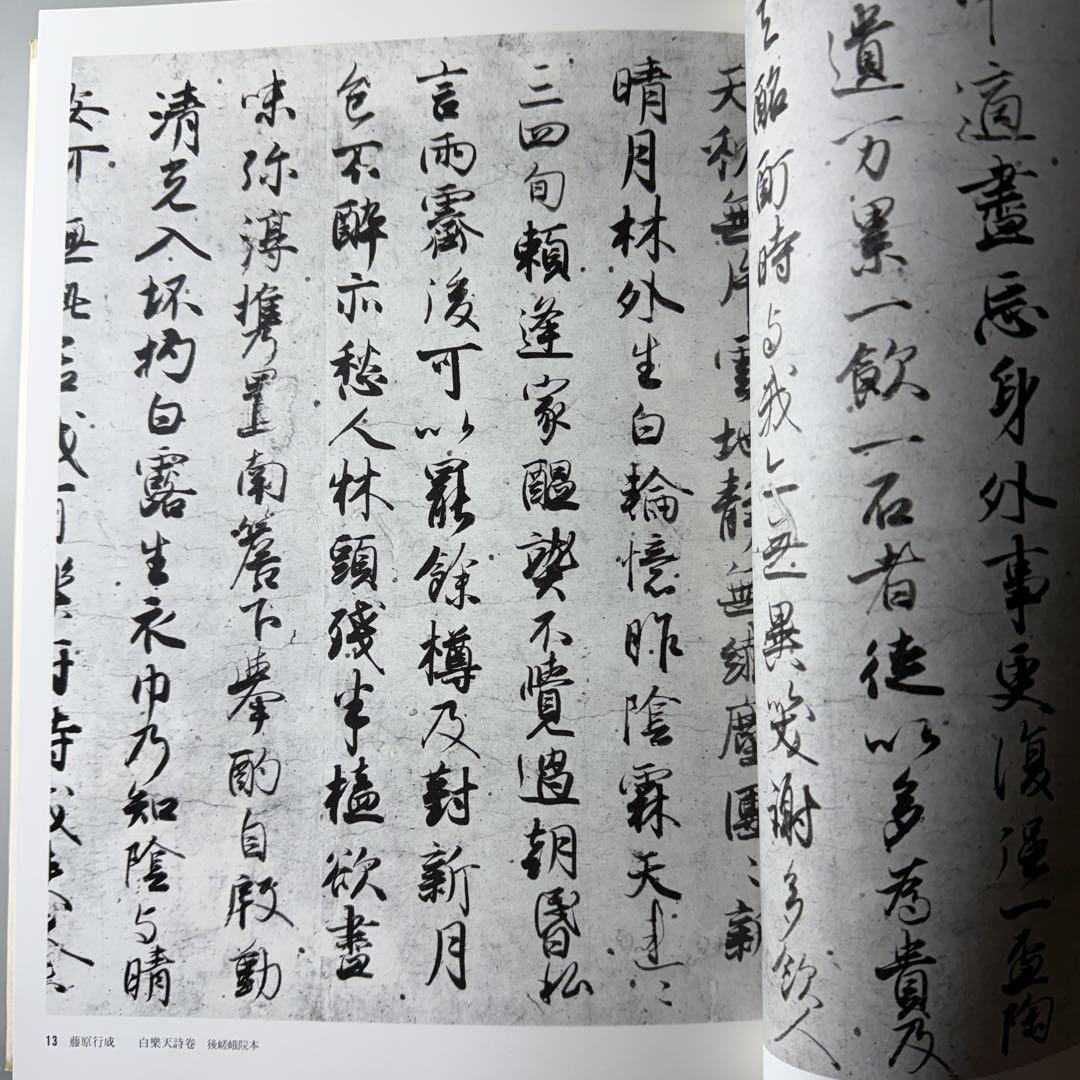 適盡忘身外事更復強一盃陶
遺万累一飲一石者徒以多為貴及
其酩酊時与我亦無異笑謝多飲人
天秋無片雲地静無纖塵團〻新
晴月林外生白輪憶昨陰霖天連〻
三四旬賴逢家醞熟不覺過朝昏私
言雨霽後可以罷餘樽及對新月
色不醉亦愁人牀頭殘半榼欲盡
味弥淳攜置南簷下舉酌自殷勤
清光入坏杓白露生衣巾乃知陰与晴
安可無此君我有樂府詩成
13 藤原行成 白樂天詩卷 後嵯峨院本